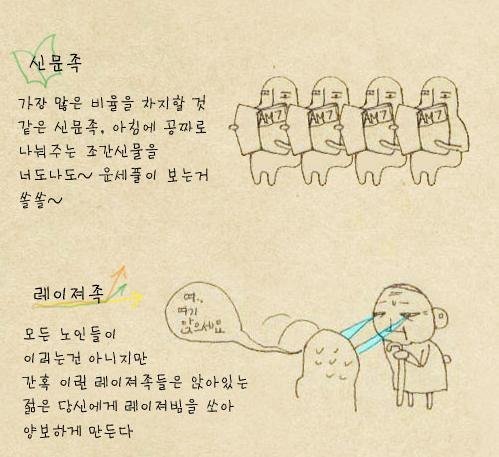 신문족
가장 많은 비율을 차지할 것
같은 신문족, 아침에 공짜로
나눠주는 조간신물을
너도나도~ 운세풀이 보는거
쏠쏠~
AM7 AM7 AM7 AM7
레이져족
모든 노인들이
이러는건 아니지만
간혹 이런 레이져족들은 앉아있는
젊은 당신에게 레이져빔을 쏘아
양보하게 만든다
여..
여기
앉으세요